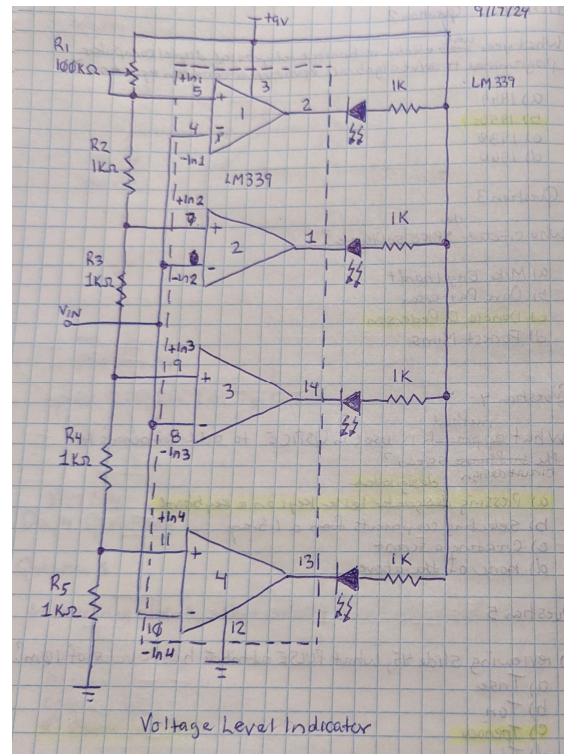 9/17/24
+9V
R1
100KΩ
+In1
5
+
3
1
2
1K
LM339
4
-
-In1
LM339
R2
1KΩ
+In2
7
+
2
1
1K
6
-
-In2
R3
1KΩ
VIN
+In3
9
+
3
14
1K
8
-
-In3
R4
1KΩ
+In4
11
+
4
13
1K
10
-
-In4
12
R5
1KΩ
Voltage Level Indicator